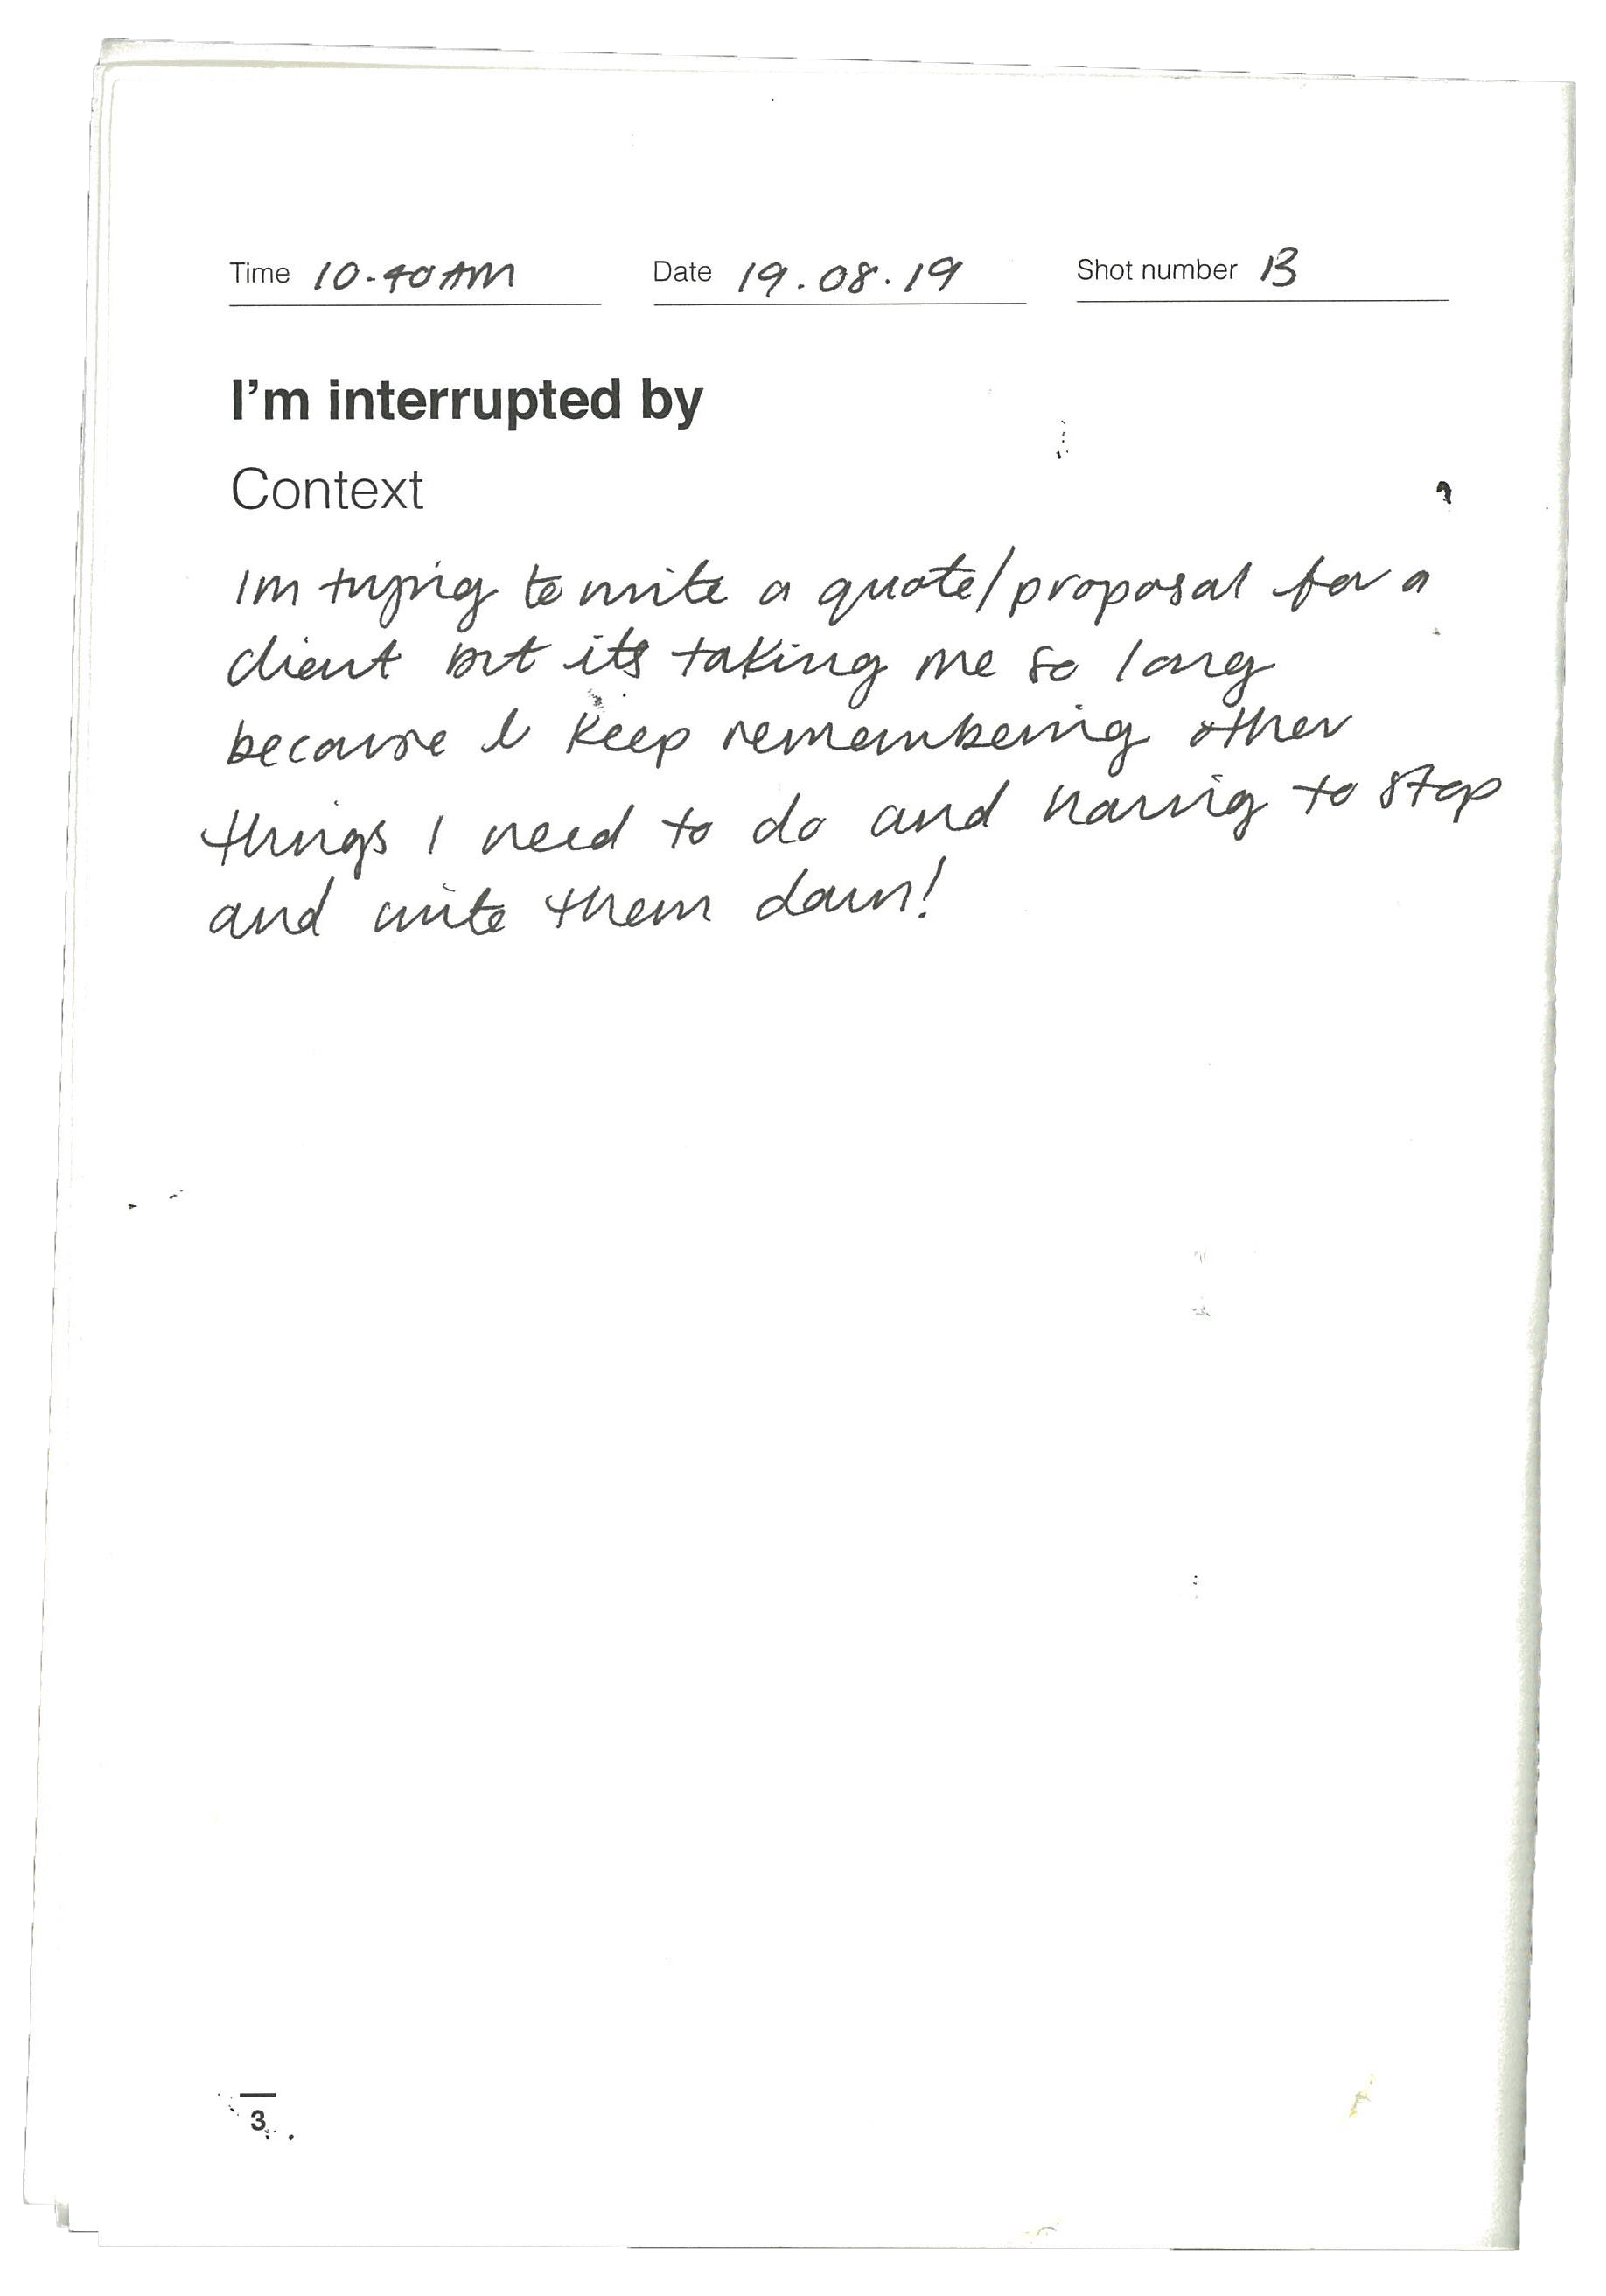 Time 10.40AM Date 19.08.19 Shot number 13
I'm interrupted by
Context
Im trying to write a quote/proposal for a
client but its taking me so long
because I keep remembering other
things I need to do and having to stop
and write them down!
3